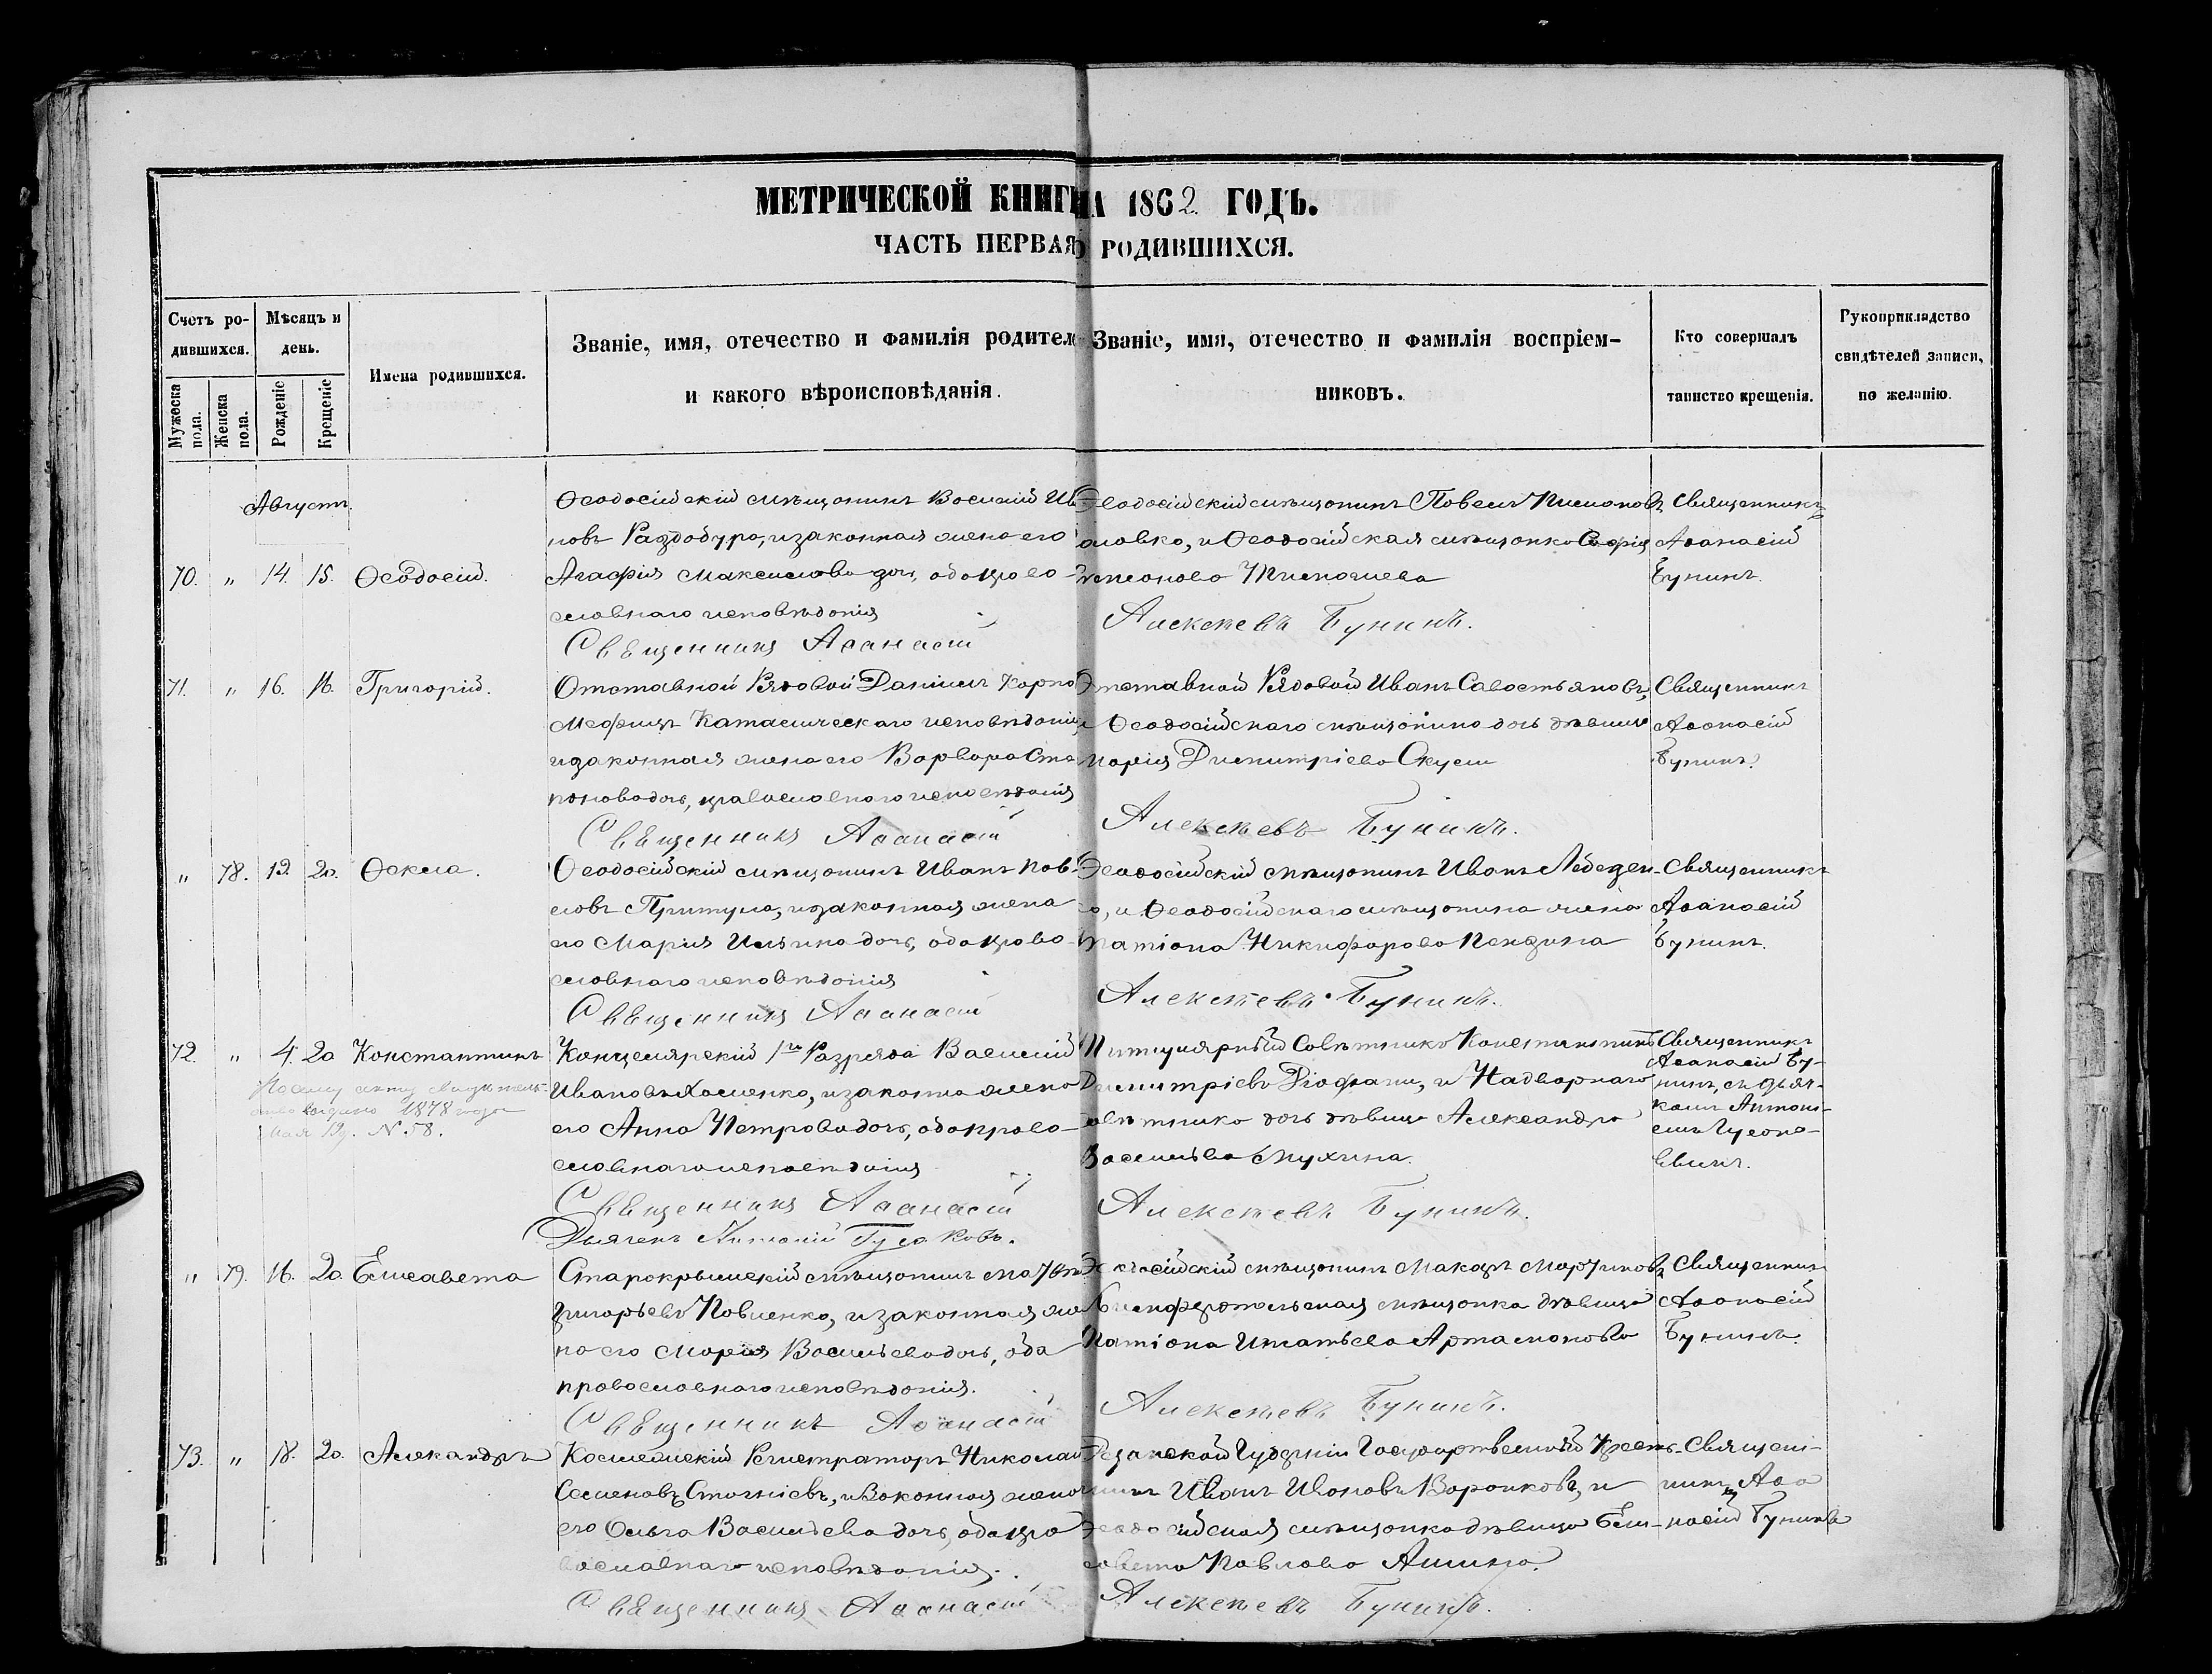 МЕТРИЧЕСКОЙ КНИГИ
НА 1862 ГОДЪ.
ЧАСТЬ ПЕРВАЯ
О РОДИВШИХСЯ.
Счетъ родившихся.
Мужеска пола.
Женска пола.
Мѣсяцъ и день.
Рожденіе
Крещеніе
Имена родившихся.
Званіе, имя, отечество и фамилія родител
и какого вѣроисповѣданія.
Званіе, имя, отечество и фамилія воспріем-
никовъ.
Кто совершалъ
таинство крещенія.
Рукоприкладство
свидѣтелей записи,
по желанію.
Августъ.
70. „ 14. 15. Ѳеодосій.
Ѳеодосійскій мѣщанинъ Василій Ива
новъ Раздобура, и законная жена его
Агафія Максимова дочь, оба право-
славнаго исповѣданія
Священникъ Аѳанасій
Ѳеодосійскій мѣщанинъ Павелъ
и Ѳеодосійская мѣщанка Софія
Алексѣевъ Бунинъ.
Священникъ
Аѳанасій
Бунинъ.
71. „ 16. 16. Григорій.
Отставной Рядовой Даніилъ
Католическаго исповѣданія,
и законная жена его Варвара
дочь, православнаго исповѣданія
Священникъ Аѳанасій
Отставной Рядовой Иванъ Савостьяновъ,
и Ѳеодосійскаго мѣщанина дочь дѣвица
Марія Димитріева
Алексѣевъ Бунинъ.
Священникъ
Аѳанасій
Бунинъ.
„ 78. 19. 20. Ѳекла.
Ѳеодосійскій мѣщанинъ Иванъ Пав-
ловъ Притула, и законная жена
его Марія Ильина дочь, оба право-
славнаго исповѣданія
Священникъ Аѳанасій
Ѳеодосійскій мѣщанинъ Иванъ Лебеден-
ко, и Ѳеодосійскаго мѣщанина жена
Татіана Никифорова
Алексѣевъ Бунинъ.
Священникъ
Аѳанасій
Бунинъ.
72. „ 4. 20 Константинъ
По сему акту свидѣтель-
ство выдано 1878 года
Мая 19. N. 58.
Канцелярскій 1го Разряда Василій
Ивановъ Хоменко, и законна жена
его Анна Петрова дочь, оба право-
славнаго исповѣданія
Священникъ Аѳанасій
Дьячекъ Антоній Гусаковъ.
Титулярный Совѣтникъ Константинъ
Димитріевъ и Надворнаго
совѣтника дочь дѣвица Александра
Васильева Мухина.
Алексѣевъ Бунинъ.
Священникъ
Аѳанасій Бу-
нинъ, съ дьяч-
комъ Антоні-
емъ Гусако-
вымъ.
„ 79. 16. 20. Елисавета
Старокрымскій мѣщанинъ Матвѣй
Григорьевъ Павленко, и законная же
на его Марія Васильева дочь, оба
православнаго исповѣданія.
Священникъ Аѳанасій
Ѳеодосійскій мѣщанинъ Макаръ Мартиновъ,
Симферопольская мѣщанка дѣвица
Татіана Игнатьева Артамонова
Алексѣевъ Бунинъ.
Священникъ
Аѳанасій
Бунинъ.
73. „ 18. 20. Александръ
Коллежскій Регистраторъ Николай
Семеновъ и Законная жена
его Ольга Васильева дочь, оба пра
вославнаго исповѣданія.
Священникъ Аѳанасій
Рязанской Губерніи Государственный Кресть-
янинъ Иванъ Ивановъ Воронковъ, и
Ѳеодосійская мѣщанка дѣвица Ели-
савета Павлова
Алексѣевъ Бунинъ.
Священ-
никъ Аѳа
насій Бунинъ